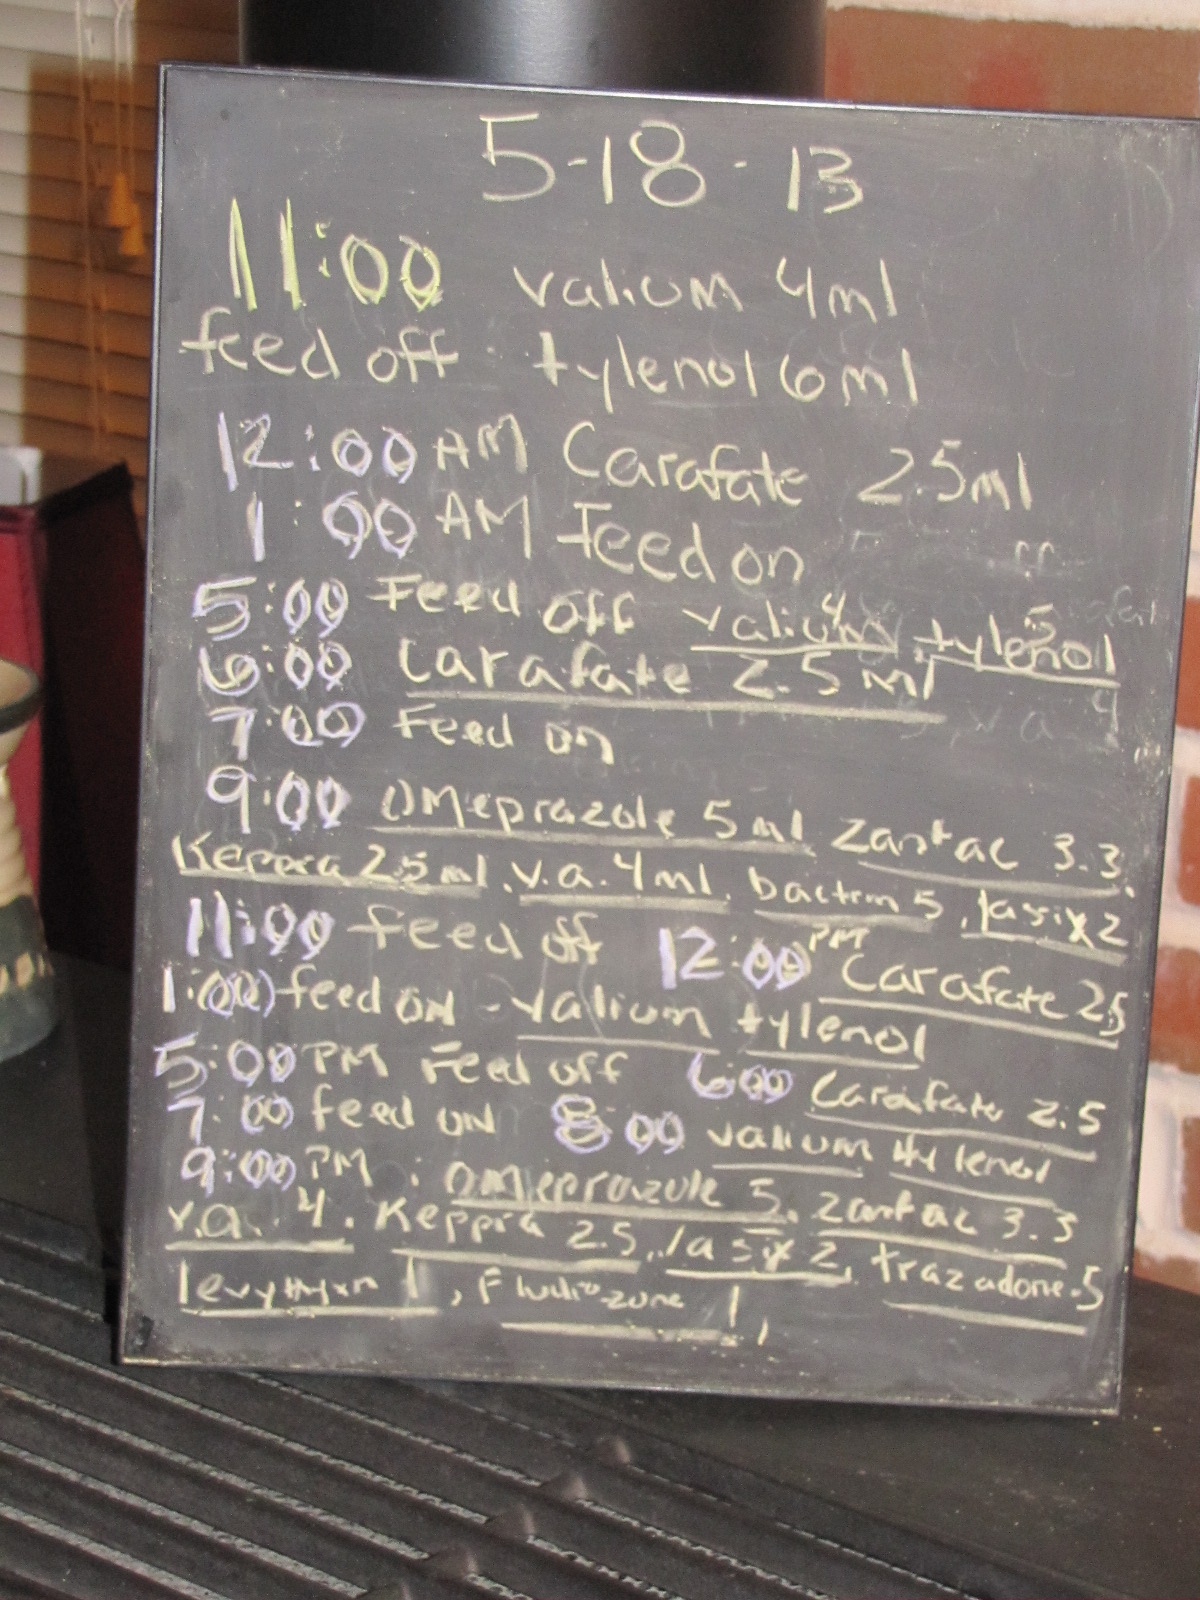 5-18-13
11:00 valium 4ml
feed off tylenol 6ml
12:00 AM Carafate 2.5ml
1:00 AM Feed on
5:00 Feed off valium 4 tylenol 5
6:00 Carafate 2.5 ml
7:00 Feed on
9:00 OMeprazole 5ml Zantac 3.3.
Keppra 2.5ml. v.a. 4ml. bactrm 5, lasix 2
11:00 feed off 12:00 PM Carafate 2.5
1:00 feed ON - valium tylenol
5:00 PM Feed off 6:00 Carafate 2.5
7:00 feed ON 8:00 valium tylenol
9:00 PM : OMeprazole 5. Zantac 3.3
v.a. 4. Keppra 2.5, lasix 2, trazadone .5
1, 1